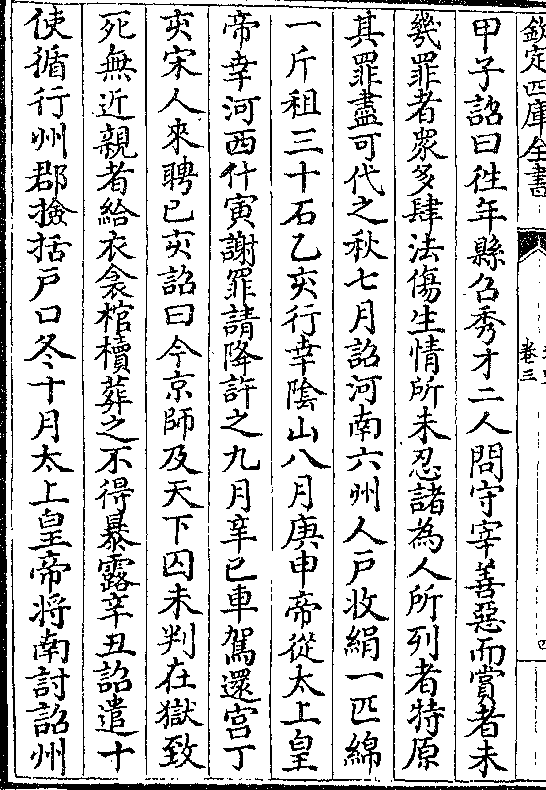 欽定四庫全書
卷三
甲子詔曰徃年縣召秀才二人問守宰善惡而賞者未
幾罪者衆多肆法傷生情所未忍諸為人所列者特原
其罪盡可代之秋七月詔河南六州人戸收絹一匹綿
一斤租三十石乙亥行幸隂山八月庚申帝從太上皇
帝幸河西什寅謝罪請降許之九月辛巳車駕還宫丁
亥宋人來聘已亥詔曰今京師及天下囚未判在獄致
死無近親者給衣衾棺櫝葬之不得暴露辛丑詔遣十
使循行州郡撿括戸口冬十月太上皇帝將南討詔州